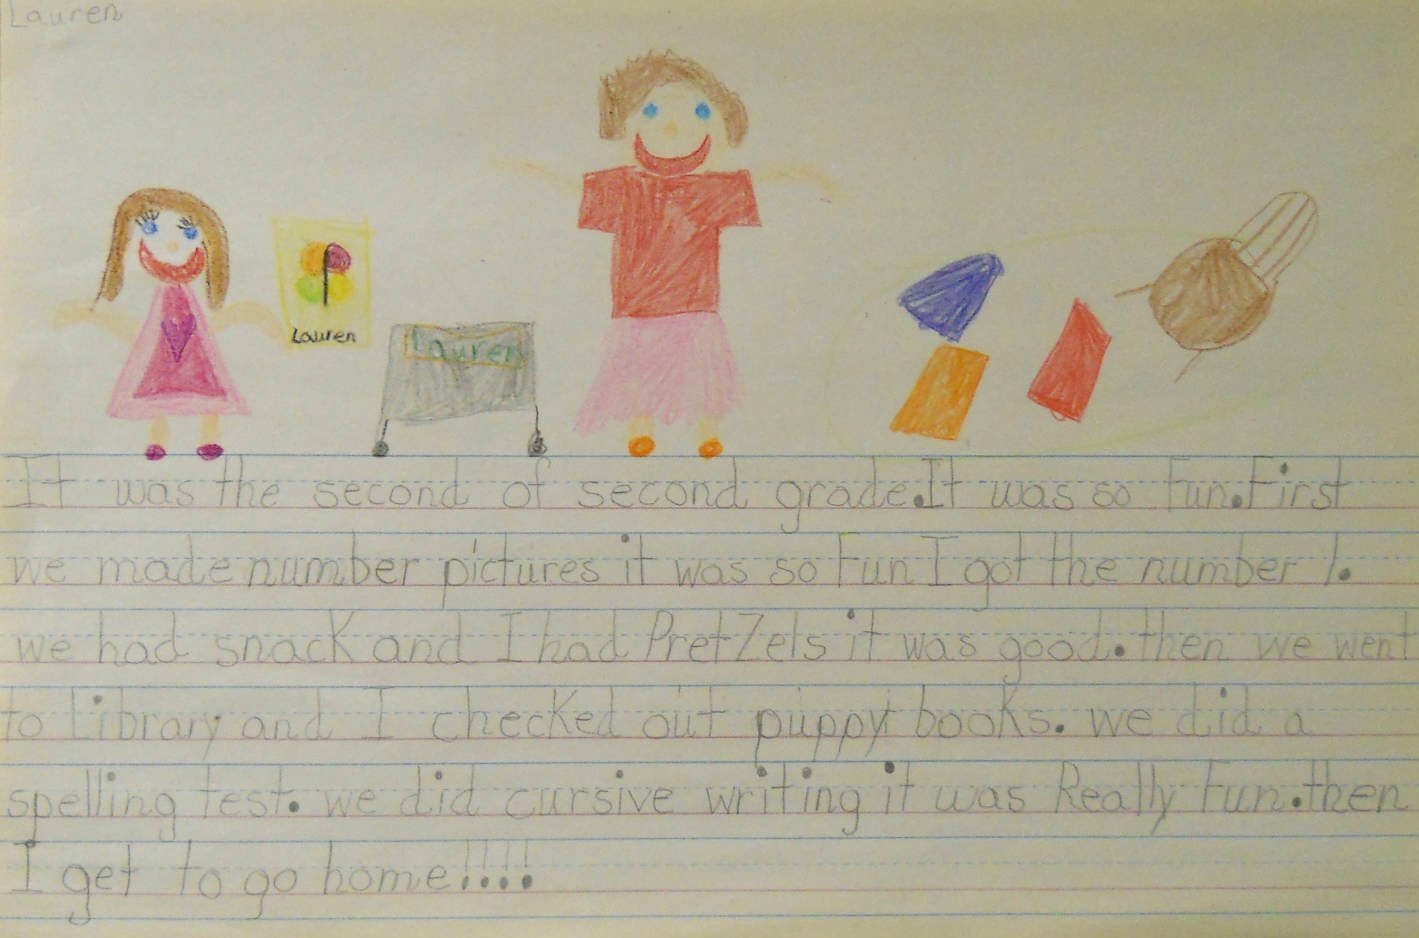 Lauren
Lauren
Lauren
It was the second of second grade.It was so fun.First
we made number pictures it was so fun I got the number 1.
we had snack and I had PretZels it was good.then we went
to Library and I checked out puppy books. we did a
spelling test. we did cursive writing it was Really fun.then
I get to go home!!!!